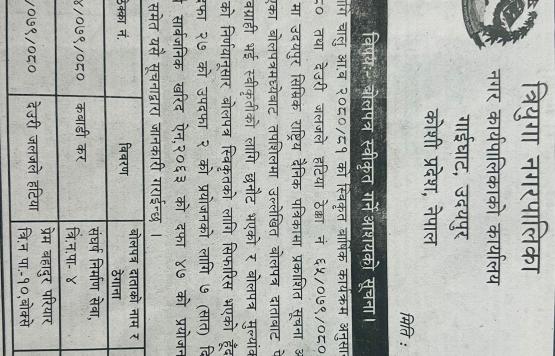 त्रियुगा नगरपालिका
नगर कार्यपालिकाको कार्यालय
गाईघाट, उदयपुर
कोशी प्रदेश, नेपाल
मिति :
विषयः- बोलपत्र स्वीकृत गर्ने आशयको सूचना ।
चालु आ.व २०८०/८१ को स्विकृत बार्षिक कार्यक्रम अनुसार
तथा देउरी जलजले हटिया ठेक्का नं ६५/०७९/०८०
मा उदयपुर सिसिक राष्ट्रिय दैनिक पत्रिकामा प्रकाशित सूचना
बोलपत्रमध्येबाट तपशिलमा उल्लेखित बोलपत्र दाताबाट
भई स्वीकृतीको लागि छनौट भएको र बोलपत्र मूल्यांकन
को निर्णयानुसार बोलपत्र स्विकृतको लागि सिफारिस भएको हुँदा
२७ को उपदफा २ को प्रयोजनको लागि ७ (सात)
सार्वजनिक खरिद ऐन,२०६३ को दफा ४७ को प्रयोजन
समेत यसै सूचनाद्वारा जानकारी गराईन्छ ।
ठेक्का नं. विवरण बोलपत्र दाताको नाम र ठेगाना
/०७९/०८० कबाडी कर संघर्ष निर्माण सेवा,
त्रि.न.पा.- ४
/०७९/०८० देउरी जलजले हटिया प्रेम बहादुर परियार
त्रि.न पा.-१०,बोक्से